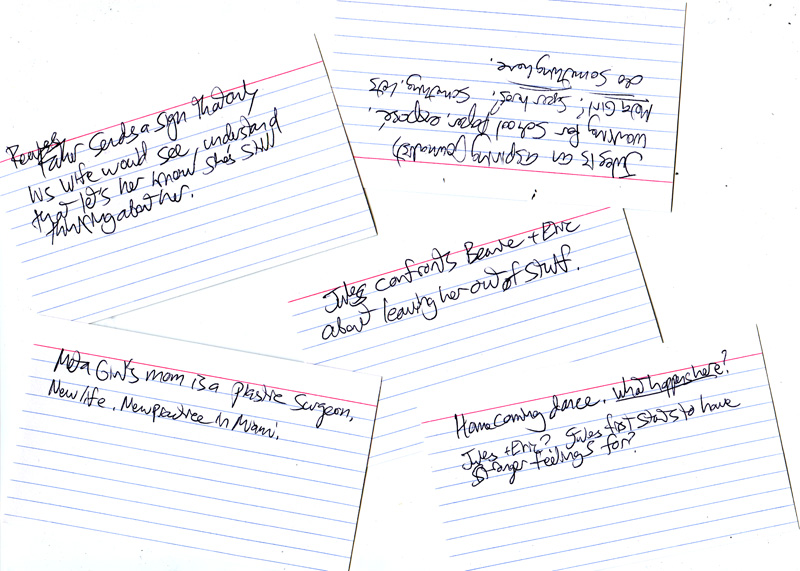 Father sends a sign that only
his wife would see, understand
that let's her know she's still
thinking about her.
Jules is an aspiring journalist)
working for school paper exposé.
Meta Girl? Something. Lets
do something here.
Jules confronts Beanie + Eric
about leaving her out of stuff.
Meta Girl's mom is a plastic surgeon.
New life. New practice in Miami.
Homecoming dance. What happens here?
Jules + Eric? Jules first starts to have
feelings for?